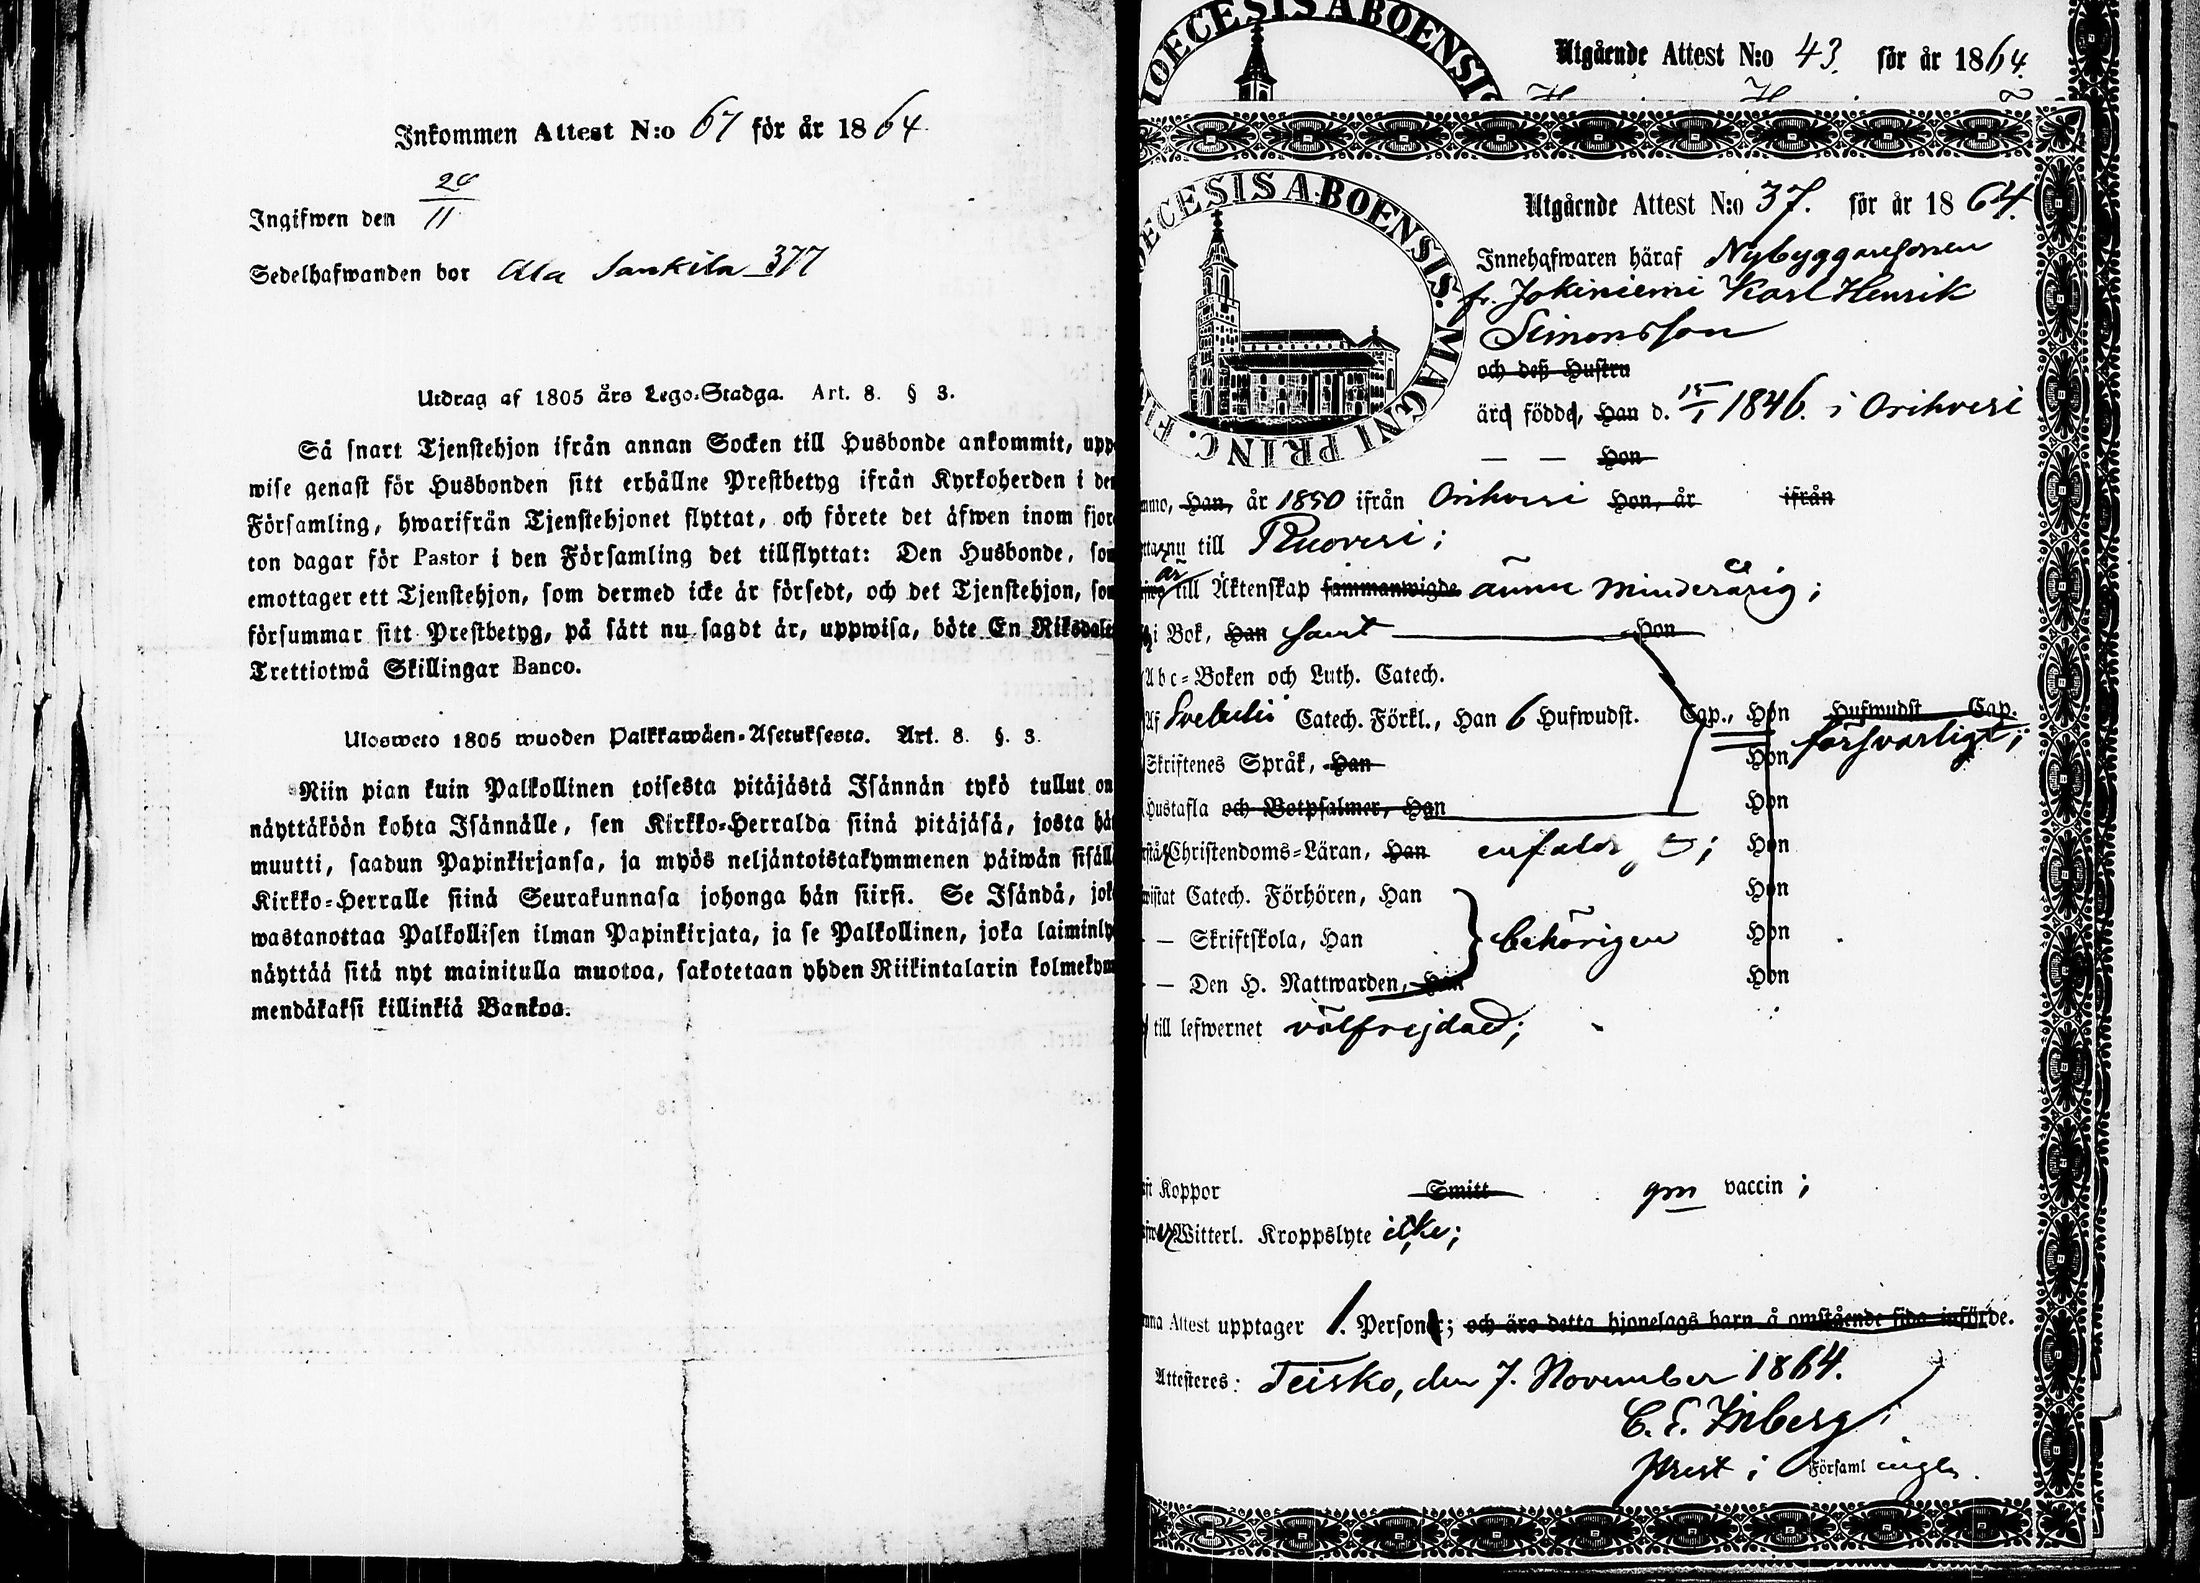 Inkommen Attest N:o 67 för år 1864.
Ingifwen den 20/11
Sedelhafwanden bor Ala 377
Utdrag af 1805 års Lego-Stadga. Art. 8. § 3.
Så snart Tjenstehjon ifrån annan Socken till Husbonde ankommit, upp-
wise genast för Husbonden sitt erhållne Prestbetyg ifrån Kyrkoherden i den
Församling, hwarifrån Tjenstehjonet flyttat, och förete det äfwen inom fjor-
ton dagar för Pastor i den Församling det tillflyttat: Den Husbonde, som
emottager ett Tjenstehjon, som dermed icke är försedt, och det Tjenstehjon, som
försummar sitt Prestbetyg, på sätt nu sagdt är, uppwisa, böte En Riksdaler
Trettiotwå Skillingar Banco.
Ulosweto 1805 wuoden Palkkawäen-Asetuksesta. Art. 8. §. 3.
Niin pian kuin Palkollinen toisesta pitäjästä Isännän tykö tullut on
näyttäköön kohta Isännälle, sen Kirkko-Herralda siinä pitäjäsä, josta hän
muutti, saadun Papinkirjansa, ja myös neljäntoistakymmenen päiwän sisällä
Kirkko-Herralle siinä Seurakunnasa johonga hän siirsi. Se Isändä, joka
wastanottaa Palkollisen ilman Papinkirjata, ja se Palkollinen, joka laiminly
näyttää sitä nyt mainitulla muotoa, sakotetaan yhden Riikintalarin kolmekym-
mendäkaksi killinkiä Bankoa.
DIOECESIS ABOENSIS
Utgående Attest N:o 43. för år 1864.
DIOECESIS ABOENSIS. MAGNI PRINC. FI
Utgående Attest N:o 37. för år 1864.
Innehafwaren häraf Nybyggaresonen
fr. Jokiniemi Karl Henrik
Simonsson
och deß Hustru
äro födde, Han d. 15/1 1846. i Orihvesi
— — Hon
mmo, Han, år 1850 ifrån Orihvesi Hon, år ifrån
nu till Ruovesi;
är till Äktenskap sammanwigde ännu minderårig;
i Bok, Han samt Hon
Abc-Boken och Luth. Catech.
Af Svebelii Catech. Förkl., Han 6 Hufwudst. Cap., Hon Hufwudst Cap.
försvarligt;
Skriftenes Språk, Han Hon
Hustafla och Botpsalmer, Han Hon
Christendoms-Läran, Han Hon
wistat Catech. Förhören, Han Hon
— Skriftskola, Han behörigen Hon
— Den H. Nattwarden, Han Hon
till lefwernet välfrejdad;
Koppor Smitt gm vaccin;
Witterl. Kroppslyte icke;
nna Attest upptager 1. Person; och äro detta hjonelags barn å omstående sida införde.
Attesteres: Teisko, den 7. November 1864.
C. E.
Prest i Församlingen.